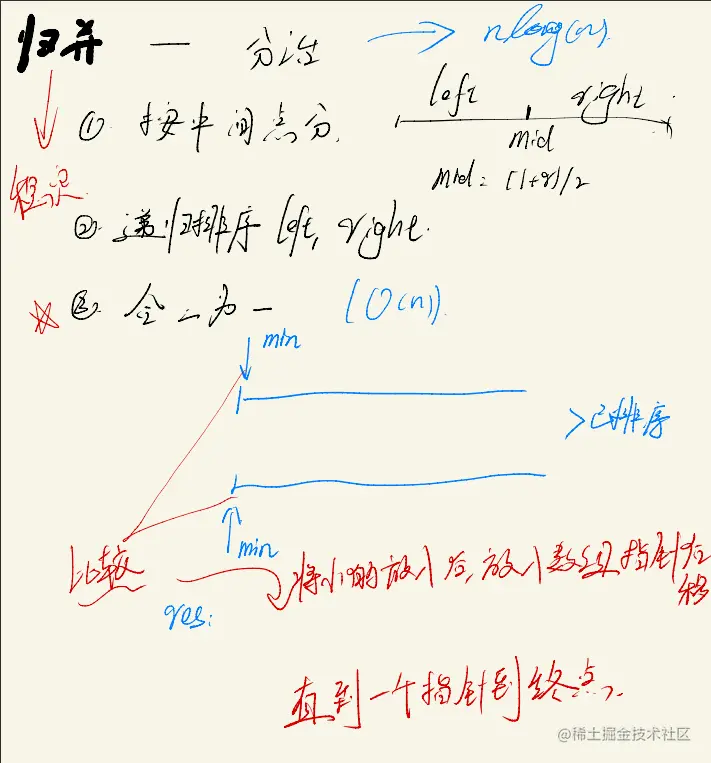 归并 — 分治 → nlog(n)
left right
① 按中间点分.
mid
mid = (l+r)/2
② 递归排序 left, right.
☆ ③ 合二为一 (O(n))
min
>已排序
min
比较 将小的放入后, 放入数组 指针后移
res:
直到一个指针到终点.
@稀土掘金技术社区